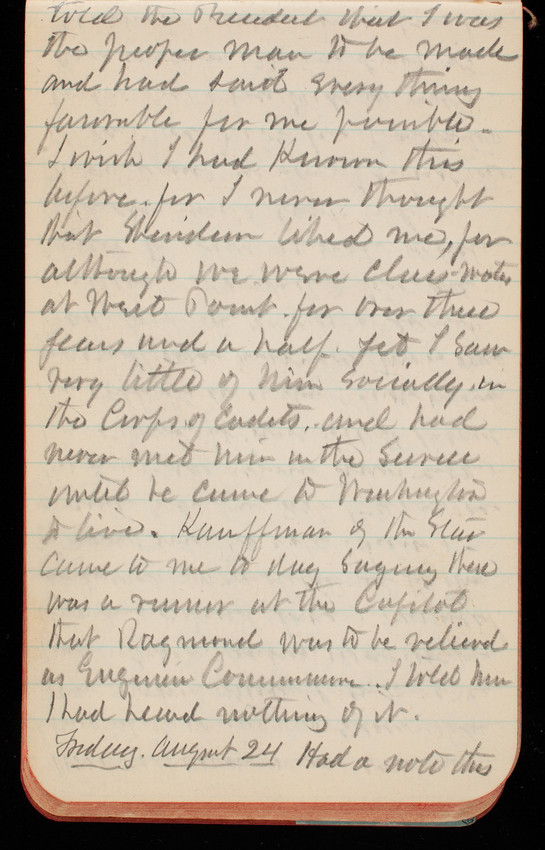 told the President that I was
the proper man to be made
and had said everything
favorable for me possible.
I wish I had known this
before. for I never thought
that liked me, for
although we were class-mates
at West Point. for over three
years and a half. yet I saw
very little of him socially in
the Corps of Cadets. and had
never met him in the service
until he came to Washington
to live. Kauffman of the Star
came to me to day saying there
was a rumor at the Capitol
that Raymond was to be relieved
as Engineer Commissioner. I told him
I had heard nothing of it.
Friday. August 24 Had a note this